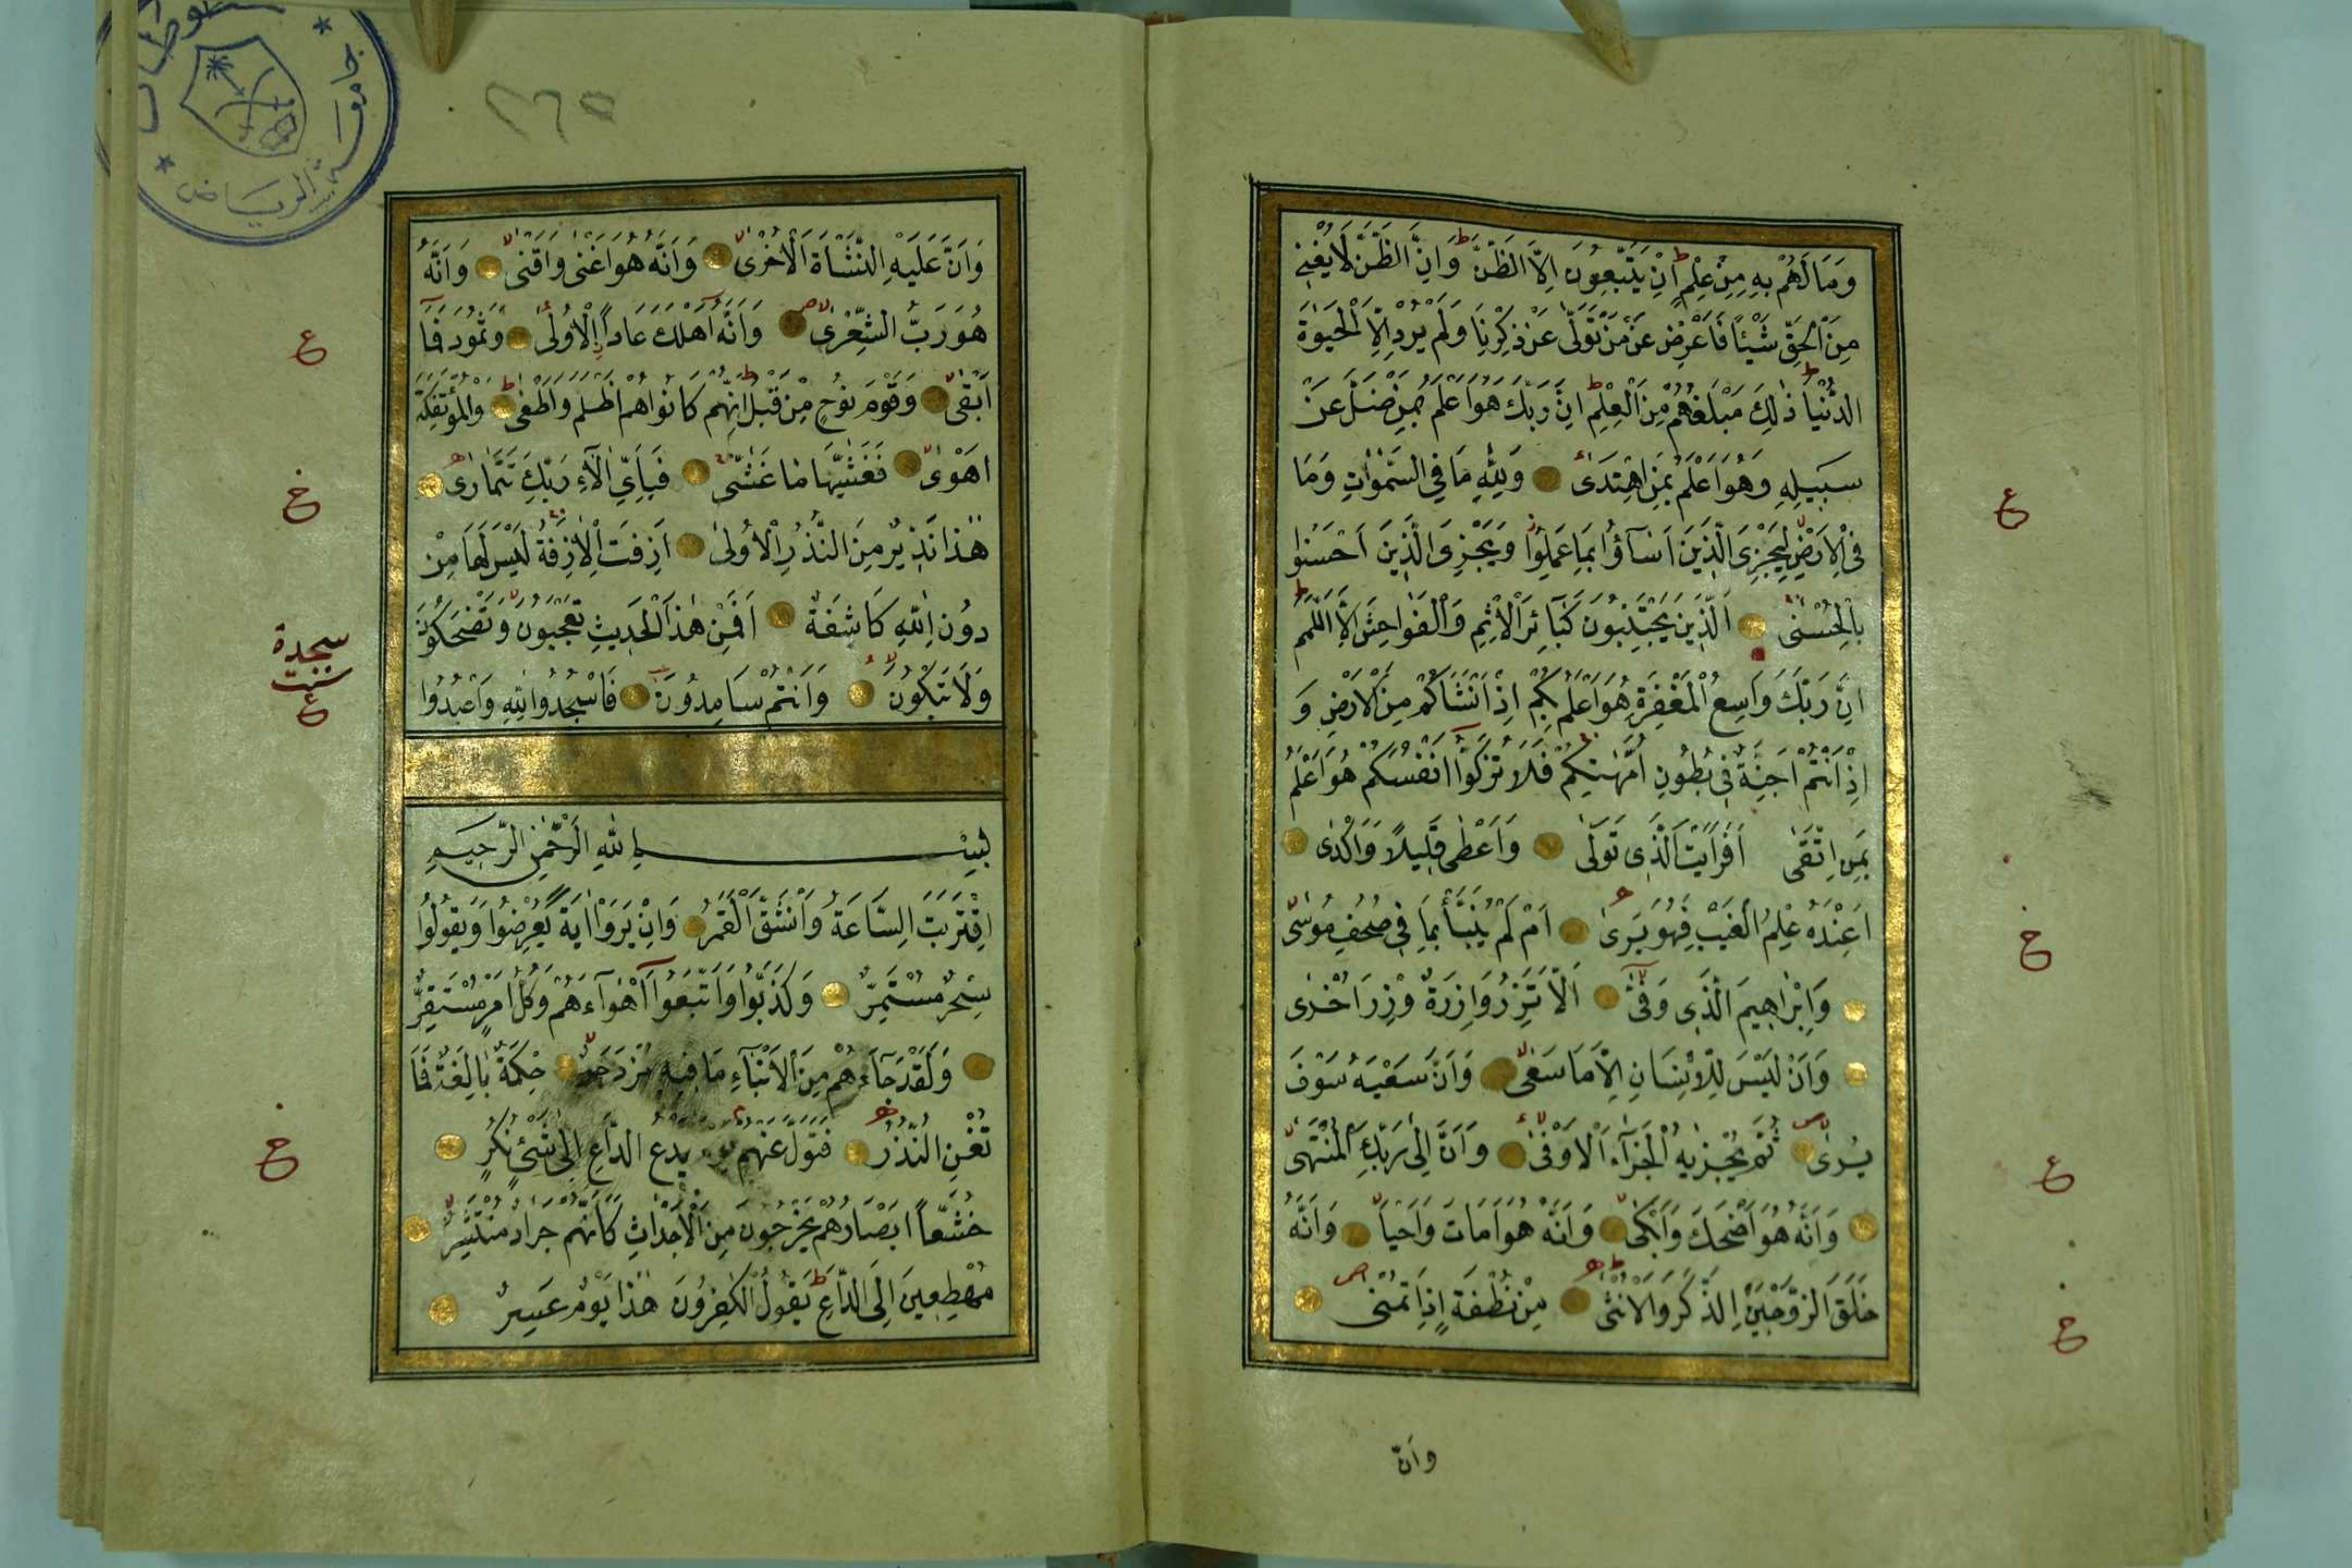 وَمَا لَهُمْ بِهِ مِنْ عِلْمٍ اِنْ يَتَّبِعُونَ اِلَّا الظَّنَّ وَاِنَّ الظَّنَّ لَا يُغْنِي
مِنَ الْحَقِّ شَيْئًا فَاَعْرِضْ عَنْ مَنْ تَوَلّٰى عَنْ ذِكْرِنَا وَلَمْ يُرِدْ اِلَّا الْحَيٰوةَ
الدُّنْيَا ذٰلِكَ مَبْلَغُهُمْ مِنَ الْعِلْمِ اِنَّ رَبَّكَ هُوَ اَعْلَمُ بِمَنْ ضَلَّ عَنْ
سَبِيلِهِ وَهُوَ اَعْلَمُ بِمَنِ اهْتَدٰى وَلِلّٰهِ مَا فِي السَّمٰوَاتِ وَمَا
فِي الْاَرْضِ لِيَجْزِيَ الَّذِينَ اَسَآؤُا بِمَا عَمِلُوا وَيَجْزِيَ الَّذِينَ اَحْسَنُوا
بِالْحُسْنٰى الَّذِينَ يَجْتَنِبُونَ كَبَآئِرَ الْاِثْمِ وَالْفَوَاحِشَ اِلَّا اللَّمَمَ
اِنَّ رَبَّكَ وَاسِعُ الْمَغْفِرَةِ هُوَ اَعْلَمُ بِكُمْ اِذْ اَنْشَاَكُمْ مِنَ الْاَرْضِ وَ
اِذْ اَنْتُمْ اَجِنَّةٌ فِي بُطُونِ اُمَّهٰتِكُمْ فَلَا تُزَكُّوا اَنْفُسَكُمْ هُوَ اَعْلَمُ
بِمَنِ اتَّقٰى اَفَرَاَيْتَ الَّذِي تَوَلّٰى وَاَعْطٰى قَلِيلًا وَاَكْدٰى
اَعِنْدَهُ عِلْمُ الْغَيْبِ فَهُوَ يَرٰى اَمْ لَمْ يُنَبَّأْ بِمَا فِي صُحُفِ مُوسٰى
وَاِبْرٰاهِيمَ الَّذِي وَفّٰى اَلَّا تَزِرُ وَازِرَةٌ وِزْرَ اُخْرٰى
وَاَنْ لَيْسَ لِلْاِنْسَانِ اِلَّا مَا سَعٰى وَاَنَّ سَعْيَهُ سَوْفَ
يُرٰى ثُمَّ يُجْزٰيهُ الْجَزَآءَ الْاَوْفٰى وَاَنَّ اِلٰى رَبِّكَ الْمُنْتَهٰى
وَاَنَّهُ هُوَ اَضْحَكَ وَاَبْكٰى وَاَنَّهُ هُوَ اَمَاتَ وَاَحْيَا وَاَنَّهُ
خَلَقَ الزَّوْجَيْنِ الذَّكَرَ وَالْاُنْثٰى مِنْ نُطْفَةٍ اِذَا تُمْنٰى
وَاَنَّ
ع
خ
ع
خ
٢٦٥
جامعة الرياض
وَاَنَّ عَلَيْهِ النَّشْاَةَ الْاُخْرٰى وَاَنَّهُ هُوَ اَغْنٰى وَاَقْنٰى وَاَنَّهُ
هُوَ رَبُّ الشِّعْرٰى وَاَنَّهُ اَهْلَكَ عَادًا الْاُولٰى وَثَمُودَ فَمَا
اَبْقٰى وَقَوْمَ نُوحٍ مِنْ قَبْلُ اِنَّهُمْ كَانُوا هُمْ اَظْلَمَ وَاَطْغٰى وَالْمُؤْتَفِكَةَ
اَهْوٰى فَغَشّٰيهَا مَا غَشّٰى فَبِاَيِّ اٰلَآءِ رَبِّكَ تَتَمَارٰى
هٰذَا نَذِيرٌ مِنَ النُّذُرِ الْاُولٰى اَزِفَتِ الْاٰزِفَةُ لَيْسَ لَهَا مِنْ
دُونِ اللّٰهِ كَاشِفَةٌ اَفَمِنْ هٰذَا الْحَدِيثِ تَعْجَبُونَ وَتَضْحَكُونَ
وَلَا تَبْكُونَ وَاَنْتُمْ سَامِدُونَ فَاسْجُدُوا لِلّٰهِ وَاعْبُدُوا
بِسْمِ اللّٰهِ الرَّحْمٰنِ الرَّحِيمِ
اِقْتَرَبَتِ السَّاعَةُ وَانْشَقَّ الْقَمَرُ وَاِنْ يَرَوْا اٰيَةً يُعْرِضُوا وَيَقُولُوا
سِحْرٌ مُسْتَمِرٌّ وَكَذَّبُوا وَاتَّبَعُوا اَهْوَآءَهُمْ وَكُلُّ اَمْرٍ مُسْتَقِرٌّ
وَلَقَدْ جَآءَهُمْ مِنَ الْاَنْبَآءِ مَا فِيهِ مُزْدَجَرٌ حِكْمَةٌ بَالِغَةٌ فَمَا
تُغْنِ النُّذُرُ فَتَوَلَّ عَنْهُمْ يَوْمَ يَدْعُ الدَّاعِ اِلٰى شَيْءٍ نُكُرٍ
خُشَّعًا اَبْصَارُهُمْ يَخْرُجُونَ مِنَ الْاَجْدَاثِ كَاَنَّهُمْ جَرَادٌ مُنْتَشِرٌ
مُهْطِعِينَ اِلَى الدَّاعِ يَقُولُ الْكٰفِرُونَ هٰذَا يَوْمٌ عَسِرٌ
ع
خ
سجدة
ع
خ